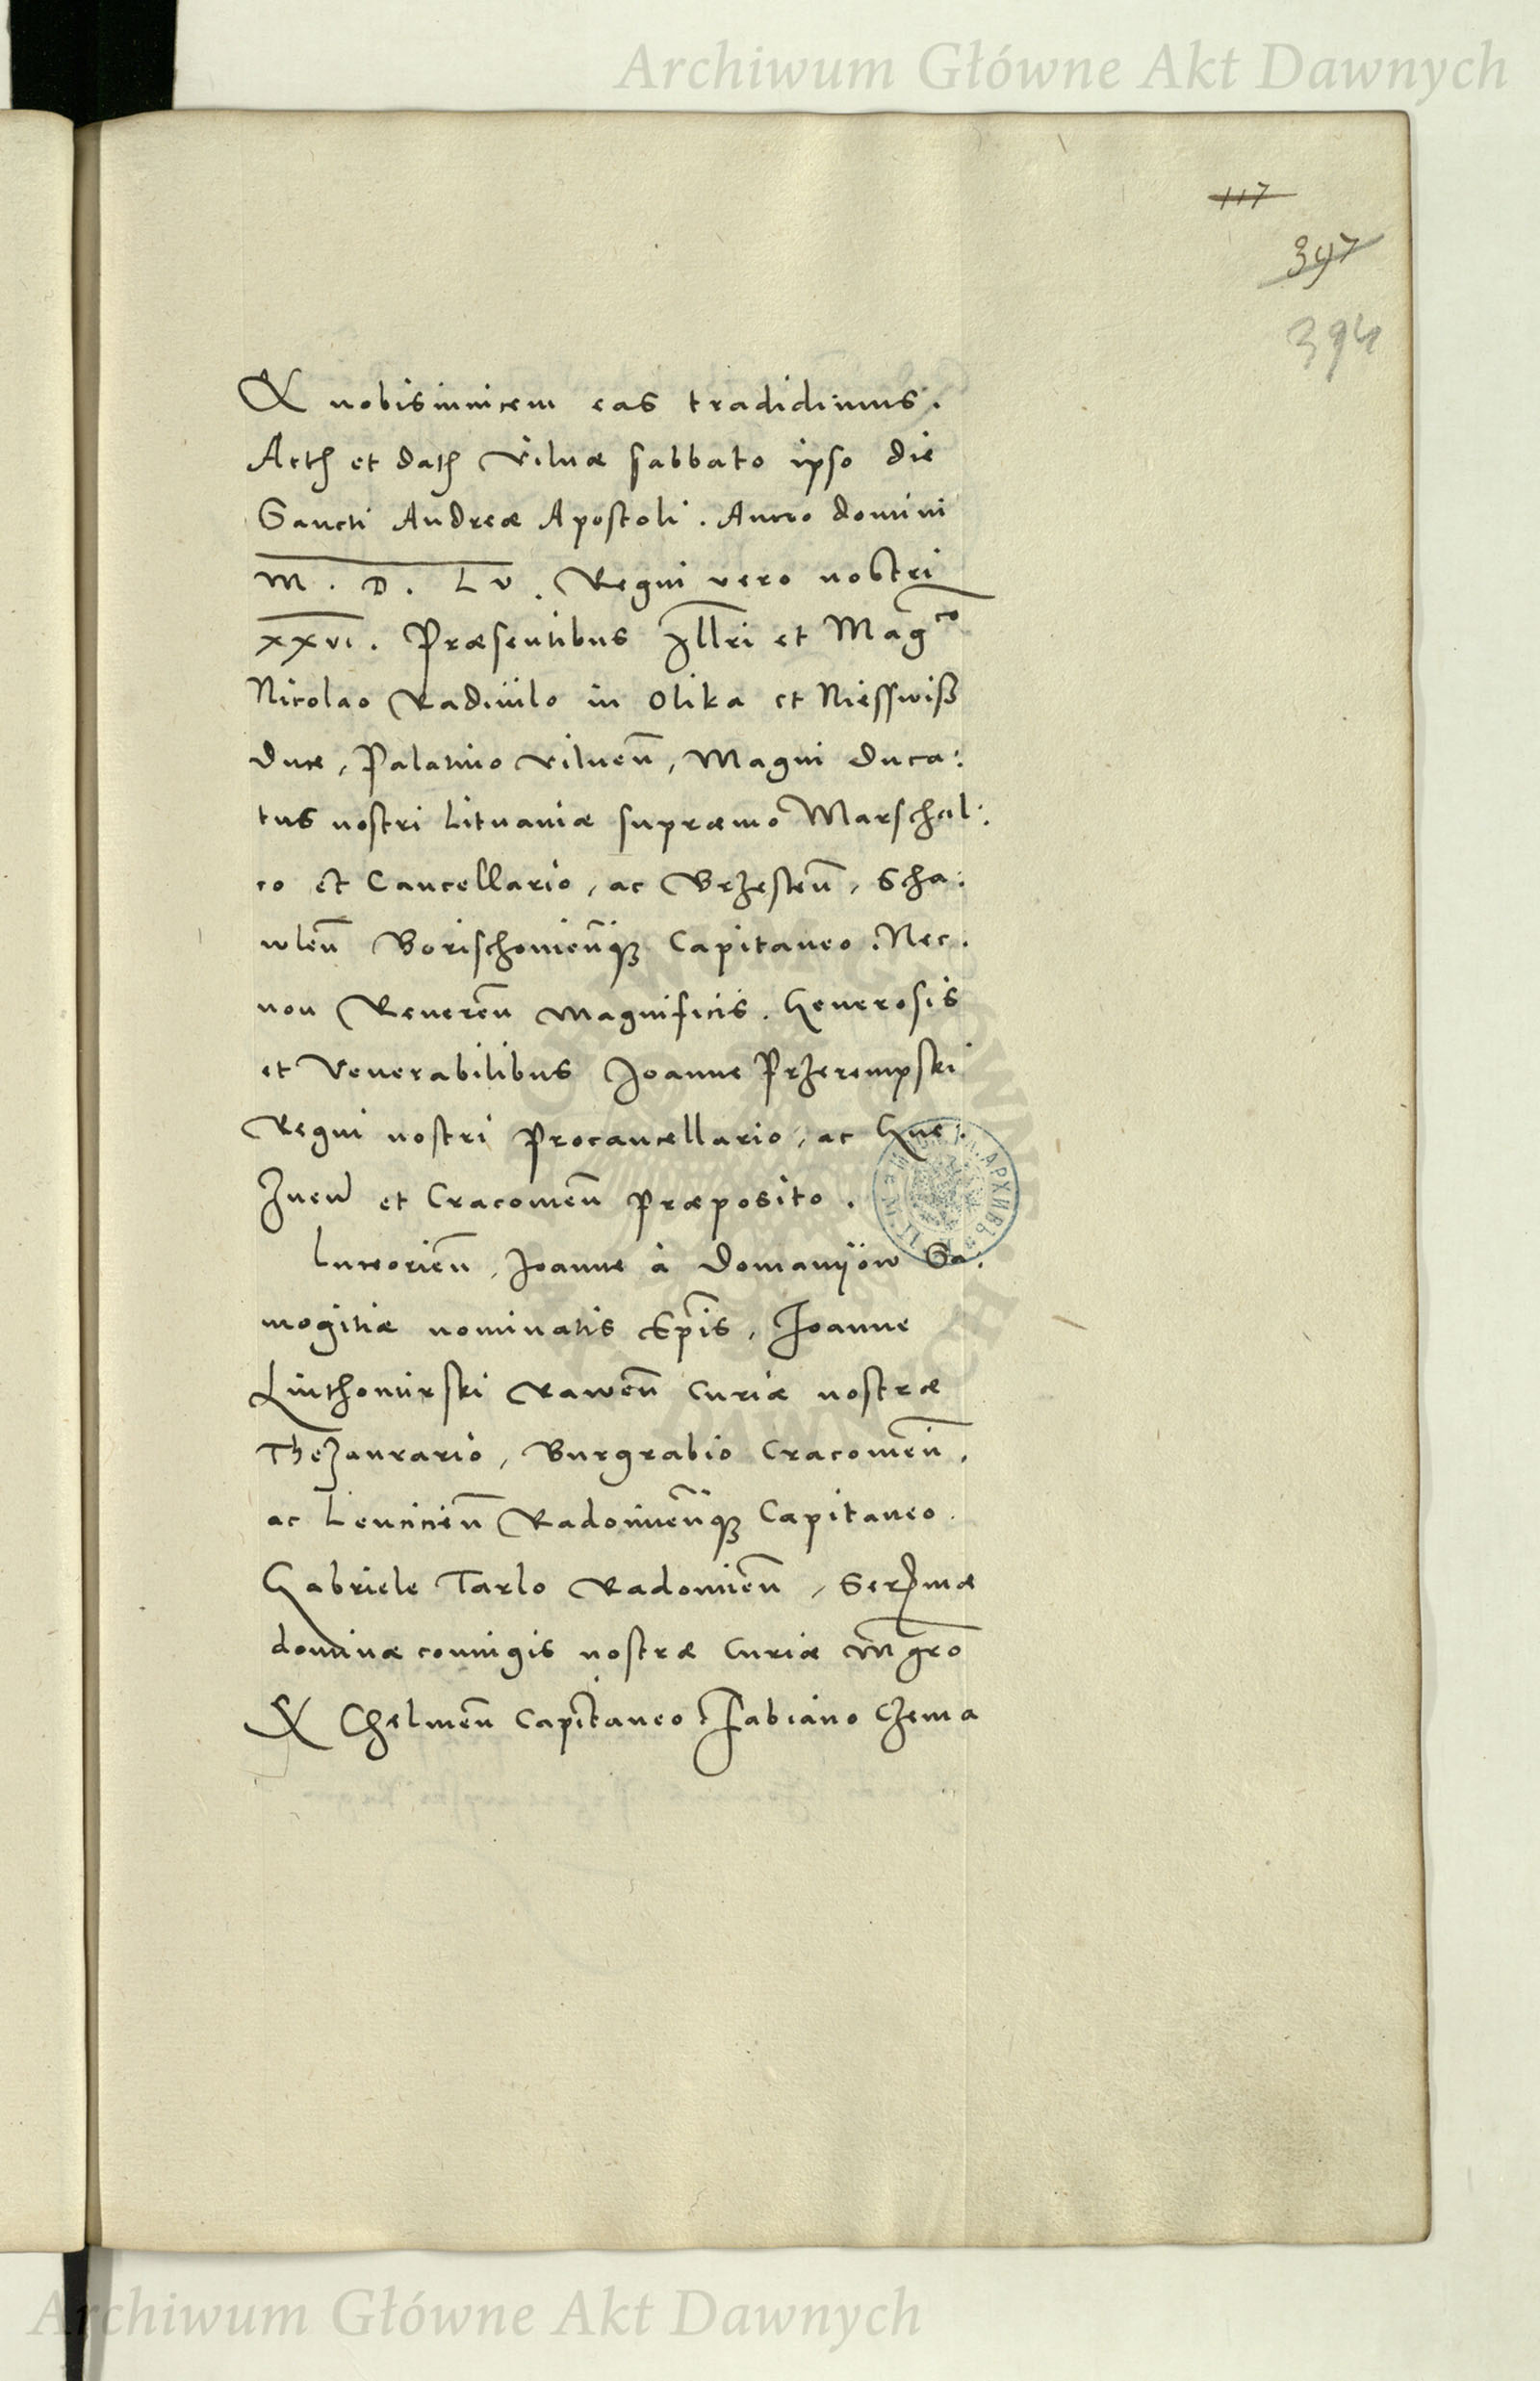 Archiwum Główne Akt Dawnych
117
397
394
& nobisinuicem eas tradidimus.
Acth et dath Vilnæ sabbato ipso die
Sancti Andreæ Apostoli. Anno domini
M. D. LV. Regni vero nostri
XXVI. Præsentibus Illri et Magco
Nicolao Radiuilo in Olika et Niesswiß
duce, Palatino Vilnen, Magni Duca:
tus nostri Lituaniæ supræmo Marschal:
co et Cancellario, ac Brzesten, Scha:
wlen Borischouienque Capitaneo. Nec.
non Reueren Magnificis. Generosis
et Venerabilibus Joanne Przerempski
Regni nostri Procancellario, ac Gne.
znen et Cracouien Præposito.
Luceorien, Joanne à Domanyow Sa.
mogitiæ nominatis Epis, Joanne
Liuthomirski Rawen Curiæ nostræ
Thezaurario, Burgrabio Cracouien,
ac Lencicien Radomienque Capitaneo.
Gabriele Tarlo Radomien, Sermæ
dominæ coniugis nostræ Curiæ Mgro
& Chelmen Capitaneo. Fabiano Czema
Archiwum Główne Akt Dawnych